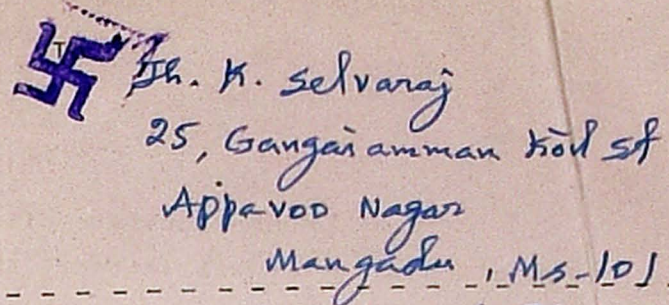 Th. K. Selvaraj
25, Gangai amman Koil st
Appavoo Nagar
Mangadu, Ms-101